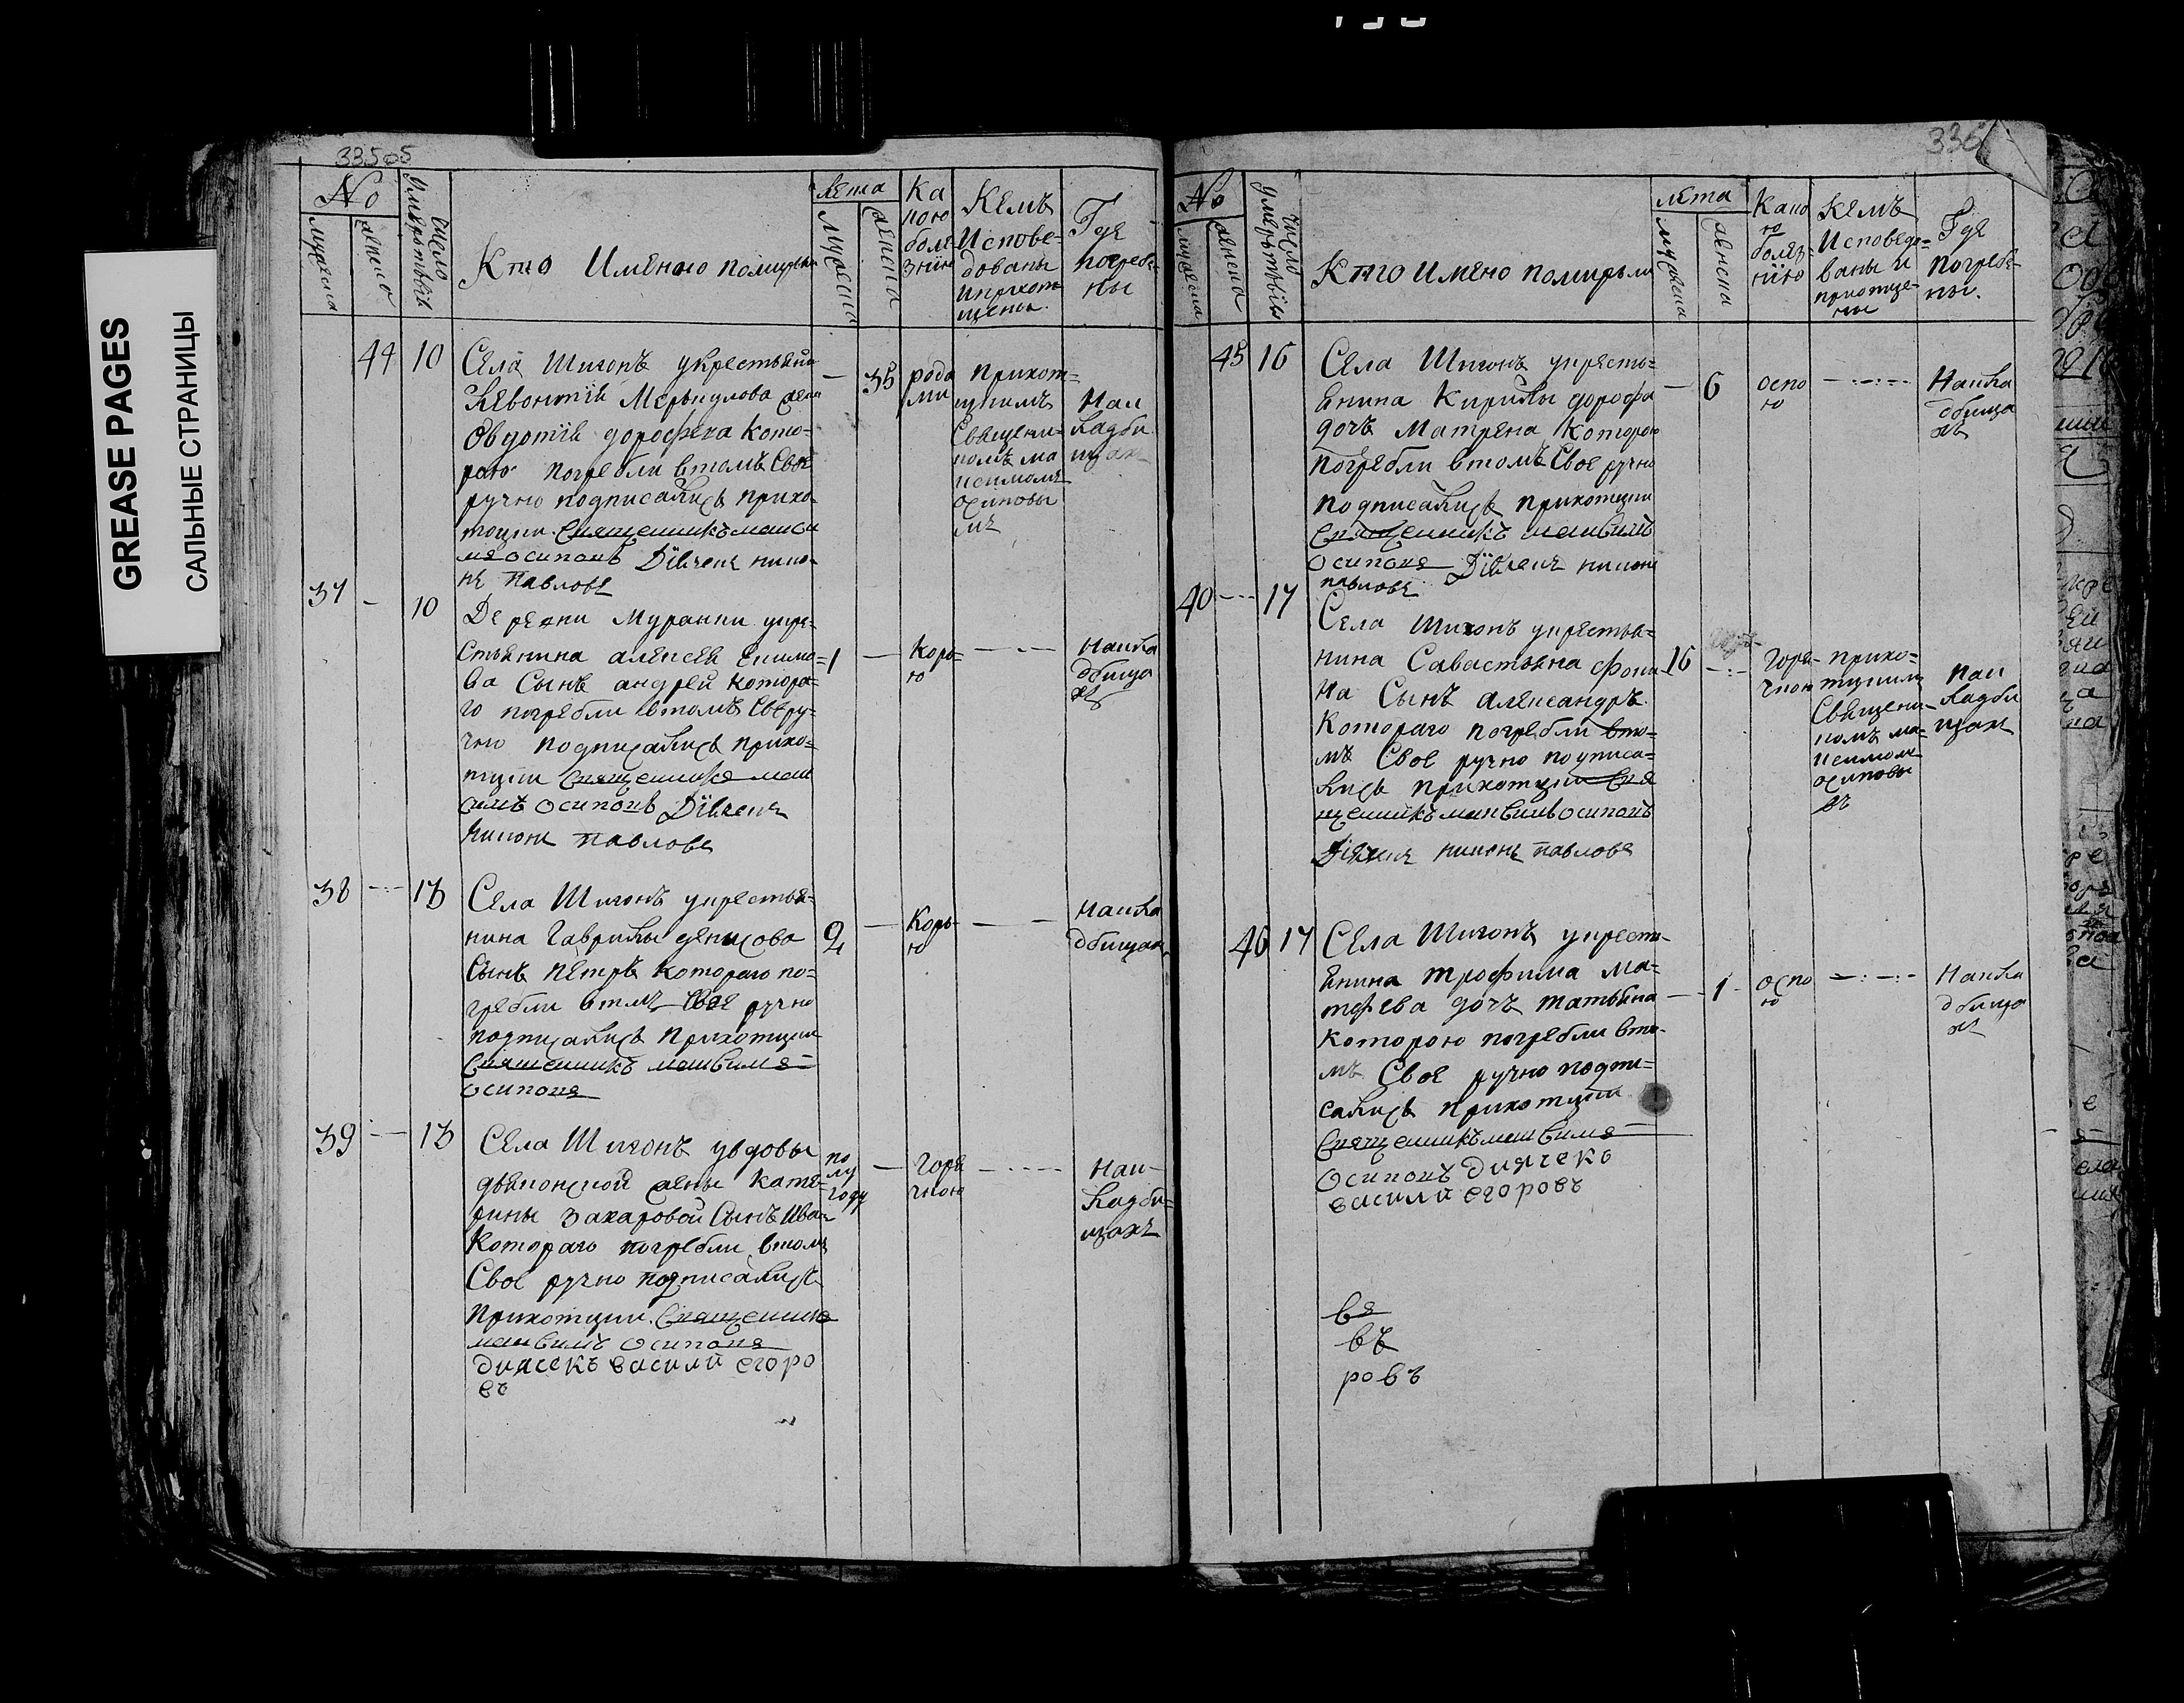 GREASE PAGES
САЛЬНЫЕ СТРАНИЦЫ
335
No
мужеска
женска
Число умерьтвiи
Кто Имяною помирьли
лета
мужеска
женска
Ка
кою
боле
знiю
Кемъ
Исповѣ=
дованы
и приот
щены
Где
погребѣ
ны
44 10
Села Шигонъ укрестьяни
Левонтiя Меркулова жена
Овдотiя дорофѣва кото=
рою погребли втомъ Свое
ручно подписались прихо=
тщии Священникъ макси
мъ осиповъ Дiячекъ нико=
нъ павловъ
35
рода
ми
прихот=
щимъ
Священи=
комъ ма
ксимомъ
осиповы
мъ
Наи
кладби
щах
37 10
Деревни Муранки укре=
стьянина алексея Екимо=
ва Сынъ андрей которо=
го погребли втомъ Сверу=
чно подписались прихо=
тщии Священникъ мак
симъ осиповъ Дiячекъ
никонъ павловъ
1
Корь=
ю
Наикла
дбища
хъ
38 13
Села Шигонъ укрестья=
нина Гаврилы денисова
Сынъ пѣтръ котораго по=
гребли втмъ Свое ручно
подписались Прихотщии
Священникъ максимъ
осиповъ
2
Корь
ю
Наикла
дбищах
39 13
Села Шигонъ увдовы
дьяконской жены Кате=
рины Захаровой Сынъ Ива
Котораго погребли втомъ
Свое ручно подписались
Прихотщии Священникъ
максимъ осиповъ
диячекъ василй егоро
въ
по
лу
году
Горя
чкою
Наи
кладби=
щахъ
336
No
мужеска
женска
число умерьтвiи
Кто Имѣно помирьли
лѣта
мужеска
женска
Како
ю
болез=
нiю
Кемъ
Исповедо=
ваны и
приотще=
ны
Где
погребѣ=
ны.
45 16
Села Шигонъ укресть=
янина Кирилы дорофе
дочь Матрена Которою
погребли втомъ Свое ручно
подписались прихотщии
Священникъ максимъ
осиповъ Дiячекъ никонъ
павловъ
6
оспо
ю
Наикла
дбища
хъ
40 17
Села Шигонъ укрестья=
нина Савастьяна фоки
на Сынъ Александръ
Котораго погребли вто=
мъ Свое ручно подписа=
лись прихотщии Свя
щенникъ максимъ осиповъ
Дiячекъ никонъ павловъ
16
Горя
чкою
прихо=
тщимъ
Священи
комъ ма=
ксимомъ
осиповы
мъ
наи
кладби
щах
46 17
Села Шигонъ укрест
янина трофима Ма=
тфева дочъ татьяна
Которою погребли вто
мъ Свое ручно подпи=
сались прихотщии
Священникъ максимъ
осиповъ диячекъ
василй егоровъ
1
оспо
ю
Наикла
дбища
хъ
въ
въ
ровъ